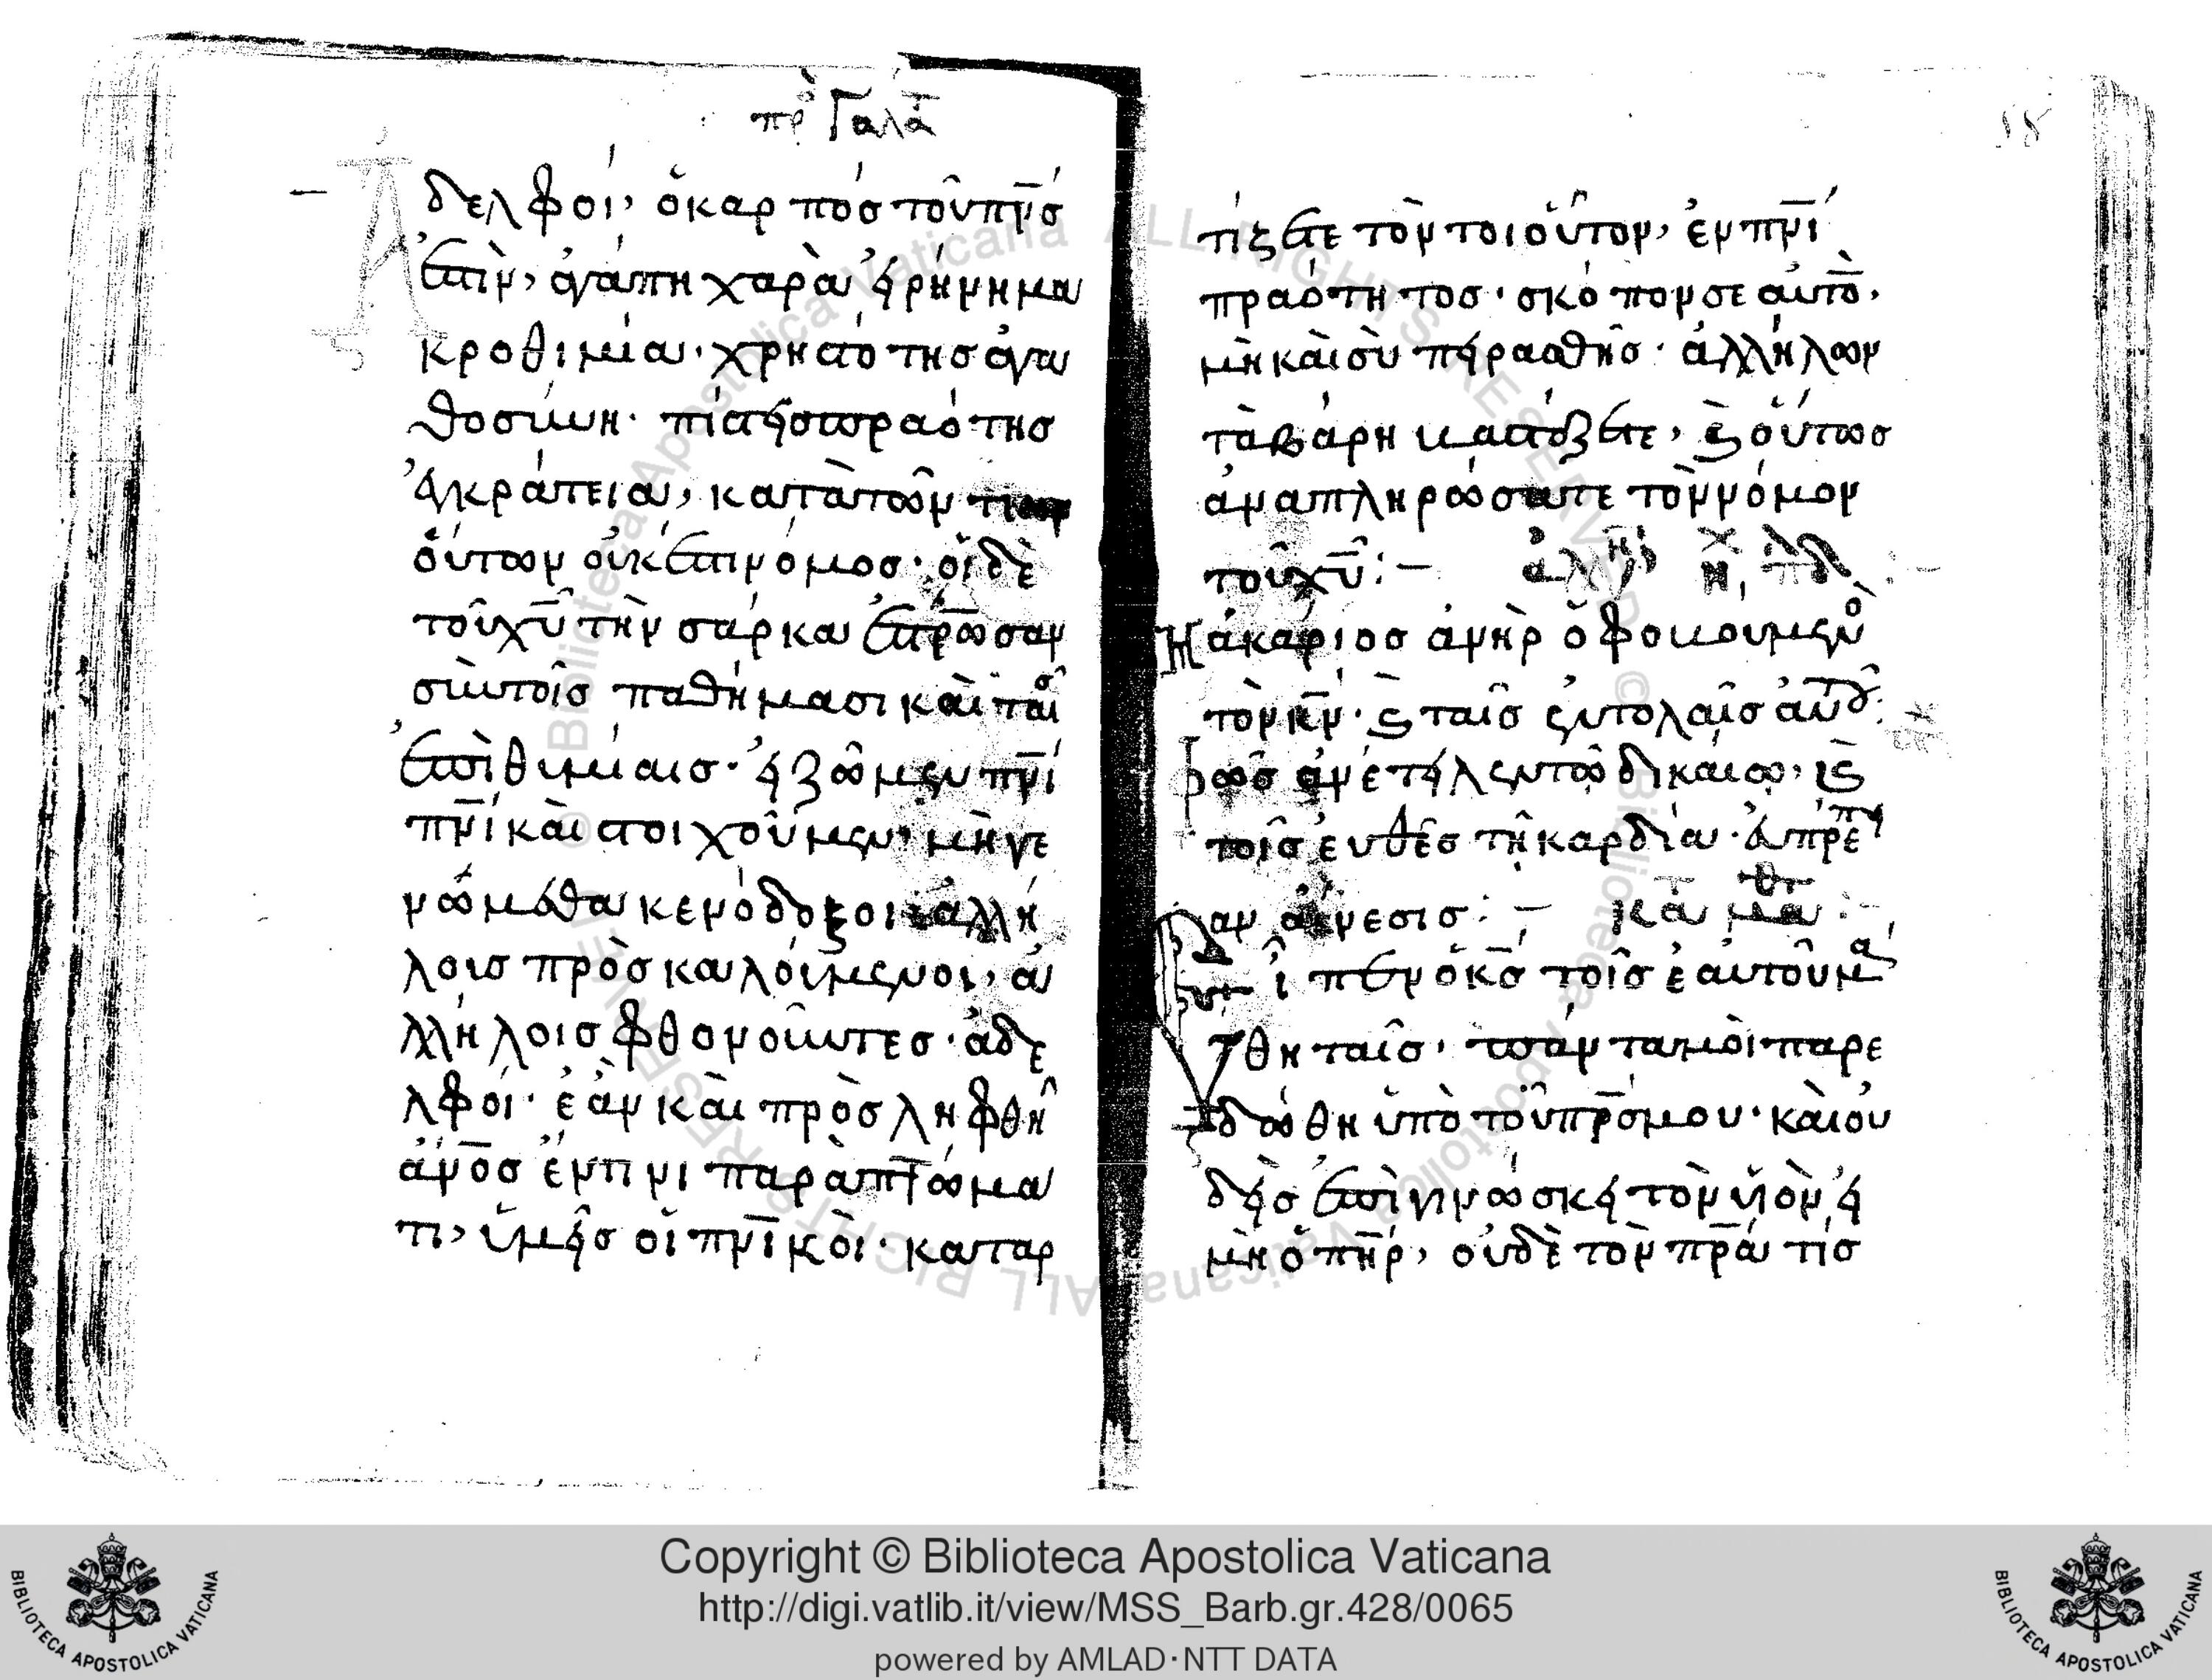 πρὸ Γαλα
Ἀδελφοί, ὁ καρπὸσ τοῦ πν̅σ
ἐστὶν, ἀγάπη χαρὰ εἰρήνη μα
κροθιμία· χρηστότησ ἀγα
θοσύνη· πίστεισ πραότησ
ἐγκράτεια, κατὰ τῶν
ὅύτων οὐκ ἐστι νόμοσ· οἱ δὲ
τοῦ χυ̅ τὴν σάρκα ἐστρώσαν
σὺν τοῖσ παθήμασι καὶ ταῖσ
ἐπὶθυμίαισ· εἰ ζῶμεν πν̅ι
πν̅ι καὶ στοιχοῦμεν· μὴ γε
νώμεθα κενόδοξοι ἀλλή
λοισ πρὸσκαλούμενοι, ἀ
λλήλοισ φθονοῦντεσ· ἀδε
λφοί· ἐὰν καὶ πρὸσληφθῆ
ἀν̅οσ ἔν τινι παρὰπτώμα
τι, ὑμεῖσ οἱ πν̅ικοὶ· καταρ
58
τίζετε τὸν τοιοῦτον, ἐν πν̅ι
πραότητοσ· σκόπον σεαυτὸ·
μὴ καὶ σὺ πειρασθῆσ· ἀλλήλων
τὰ βάρη βαστάζετε, ϗ οὕτωσ
ἀναπληρώσατε τὸν νόμον
τοῦ χυ̅:–
Μακάριοσ ἀνὴρ ὁ φοβουμεν
τὸν κν̅· ϗ ταῖσ ἐντολαῖσ αὐτοῦ
φῶσ ἀνέτειλεν τῶ δικαίω· ϗ
τοῖσ εὐθέσ τῆ καρδία· εὐπρέπει
αν αἴνεσισ:– κα μα:–
Εἶπεν ὁ κ̅σ τοῖσ ἑαυτοῦ μα
θηταῖσ· πάντα μοὶ παρε
δώθη ὑπὸ τοῦ πρ̅σ μου· καὶ οὐ
δεὶσ ἐπὶγινώσκει τὸν υἱὸν, εἰ
μὴ ὁ πη̅ρ, οὐδὲ τὸν πρ̅α τίσ
Copyright © Biblioteca Apostolica Vaticana
http://digi.vatlib.it/view/MSS_Barb.gr.428/0065
powered by AMLAD·NTT DATA
BIBLIOTECA APOSTOLICA VATICANA
BIBLIOTECA APOSTOLICA VATICANA